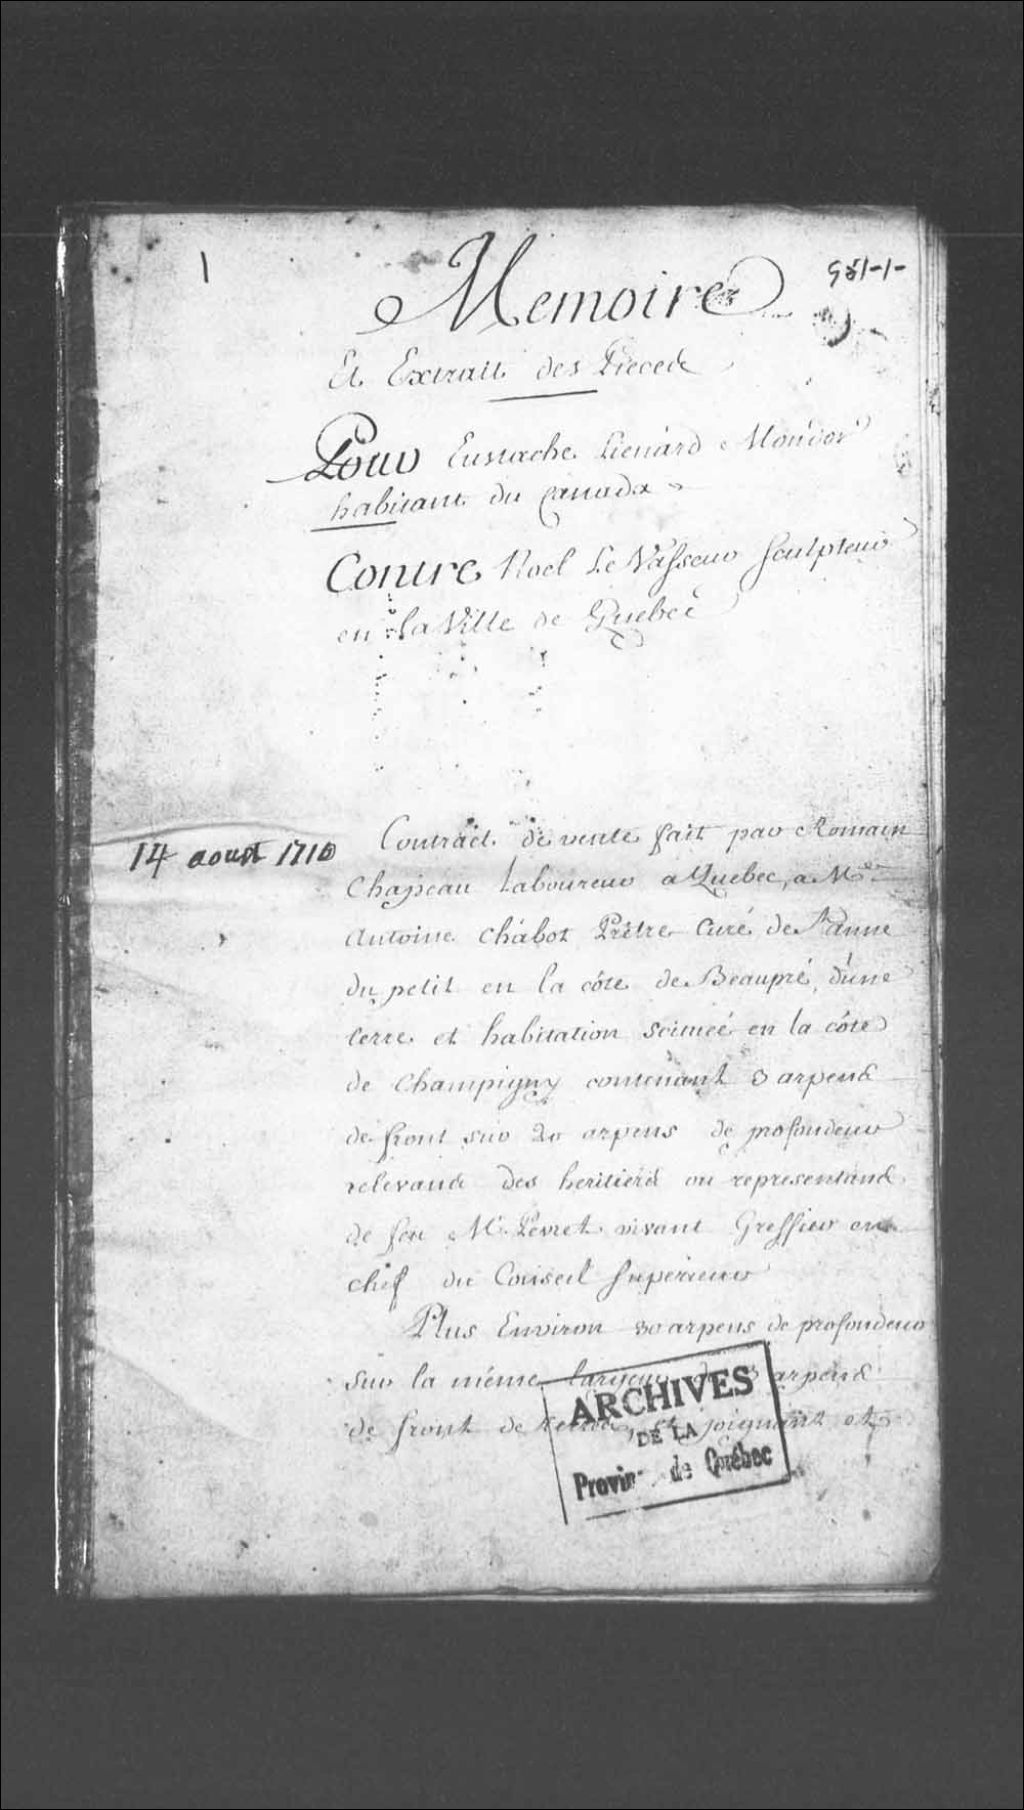 1
951-1-
Memoire
Et Extrait des Pieces
Pour Eustache Lienard Mondor
habitant du Canada
Contre Noel Le Vasseur Sculpteur
en la Ville de Quebec
14 aoust 1710
Contract de vente fait par Romain
Chapeau Laboureur a Quebec, a Mre
Antoine Chabot Prêtre Curé de Ste anne
du petit en la côte de Beaupré, d'une
terre et habitation scituée en la côte
de Champigny contenant 3 arpens
de front sur 20 arpens de profondeur
relevants des heritiers ou representans
de feu Mr. Pevret vivant Greffier en
chef du Conseil Superieur
Plus Environ 30 arpens de profondeur
sur la même largeur de 3 arpens
de front de terre, et joignant et
ARCHIVES
DE LA
Province de Québec